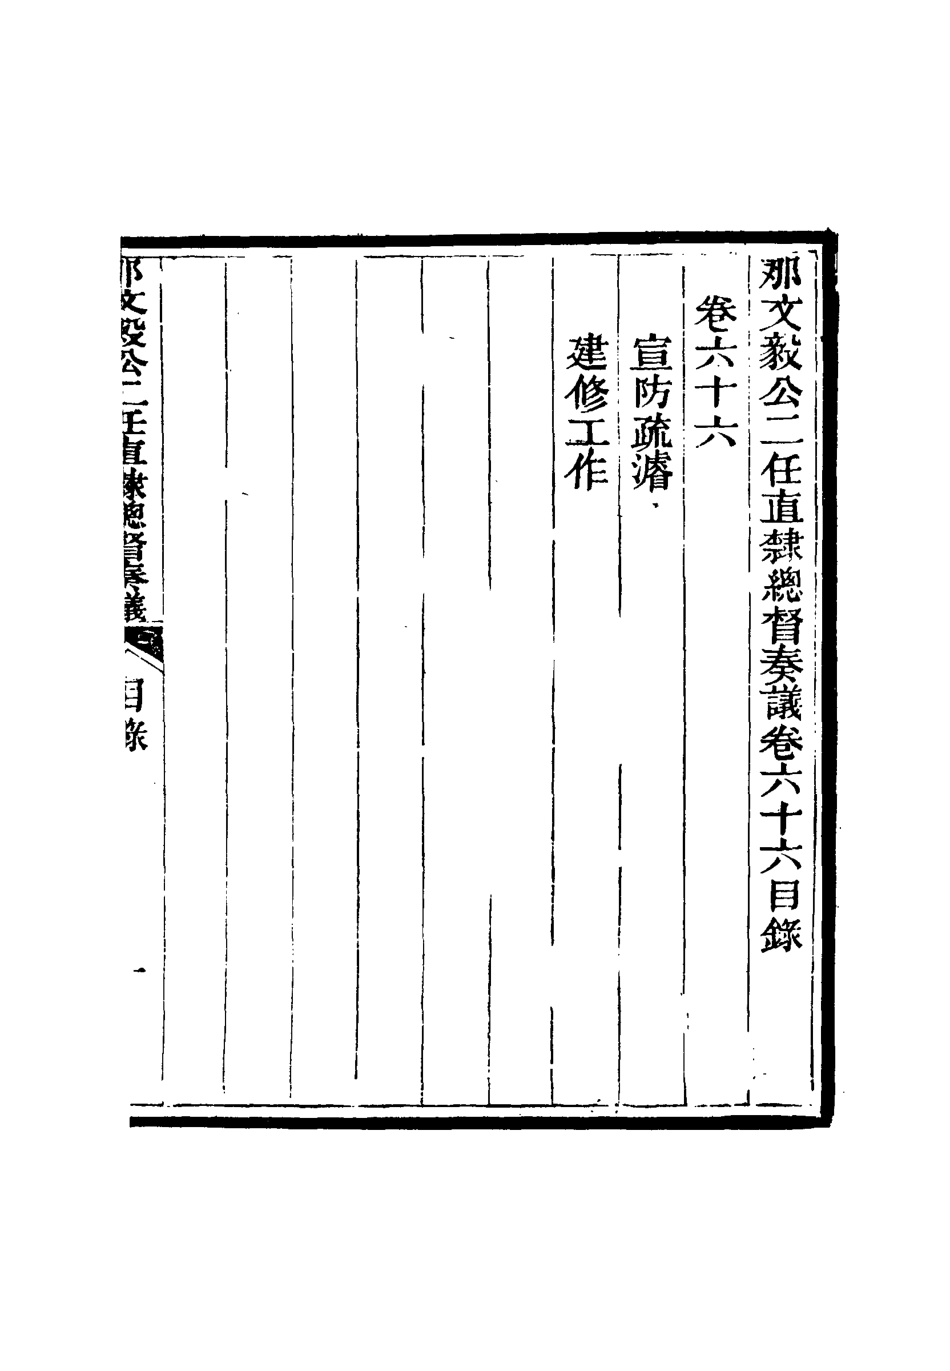 那文毅公二任直隸總督奏議卷六十六目錄
卷六十六
宣防疏濬
建修工作
那文毅公二任直隸總督奏議
目錄
一